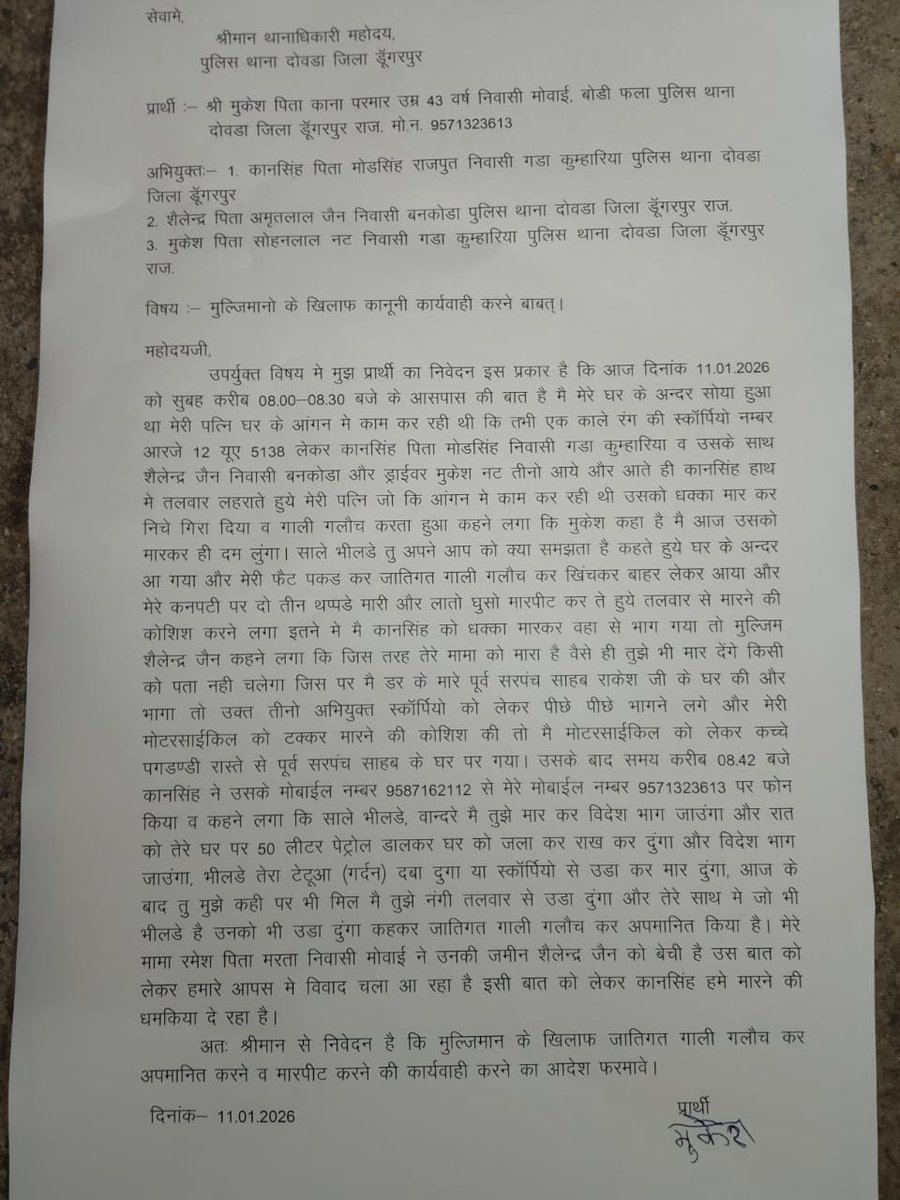 सेवामे,
श्रीमान थानाधिकारी महोदय,
पुलिस थाना दोवडा जिला डूॅगरपुर
प्रार्थी :– श्री मुकेश पिता काना परमार उम्र 43 वर्ष निवासी मोवाई, बोडी फला पुलिस थाना
दोवडा जिला डूॅगरपुर राज. मो.न. 9571323613
अभियुक्तः– 1. कानसिंह पिता मोडसिंह राजपुत निवासी गडा कुम्हारिया पुलिस थाना दोवडा
जिला डूॅगरपुर
2. शैलेन्द्र पिता अमृतलाल जैन निवासी बनकोडा पुलिस थाना दोवडा जिला डूॅगरपुर राज.
3. मुकेश पिता सोहनलाल नट निवासी गडा कुम्हारिया पुलिस थाना दोवडा जिला डूॅगरपुर
राज.
विषय :– मुल्जिमानो के खिलाफ कानूनी कार्यवाही करने बाबत्।
महोदयजी,
उपर्युक्त विषय मे मुझ प्रार्थी का निवेदन इस प्रकार है कि आज दिनांक 11.01.2026
को सुबह करीब 08.00–08.30 बजे के आसपास की बात है मै मेरे घर के अन्दर सोया हुआ
था मेरी पत्नि घर के आंगन मे काम कर रही थी कि तभी एक काले रंग की स्कॉर्पियो नम्बर
आरजे 12 यूए 5138 लेकर कानसिंह पिता मोडसिंह निवासी गडा कुम्हारिया व उसके साथ
शैलेन्द्र जैन निवासी बनकोडा और ड्राईवर मुकेश नट तीनो आये और आते ही कानसिंह हाथ
मे तलवार लहराते हुये मेरी पत्नि जो कि आंगन मे काम कर रही थी उसको धक्का मार कर
निचे गिरा दिया व गाली गलौच करता हुआ कहने लगा कि मुकेश कहा है मै आज उसको
मारकर ही दम लुंगा। साले भीलडे तु अपने आप को क्या समझता है कहते हुये घर के अन्दर
आ गया और मेरी फैट पकड कर जातिगत गाली गलौच कर खिंचकर बाहर लेकर आया और
मेरे कनपटी पर दो तीन थप्पडे मारी और लातो घुसो मारपीट कर ते हुये तलवार से मारने की
कोशिश करने लगा इतने मे मै कानसिंह को धक्का मारकर वहा से भाग गया तो मुल्जिम
शैलेन्द्र जैन कहने लगा कि जिस तरह तेरे मामा को मारा है वैसे ही तुझे भी मार देंगे किसी
को पता नही चलेगा जिस पर मै डर के मारे पूर्व सरपंच साहब राकेश जी के घर की और
भागा तो उक्त तीनो अभियुक्त स्कॉर्पियो को लेकर पीछे पीछे भागने लगे और मेरी
मोटरसाईकिल को टक्कर मारने की कोशिश की तो मै मोटरसाईकिल को लेकर कच्चे
पगडण्डी रास्ते से पूर्व सरपंच साहब के घर पर गया। उसके बाद समय करीब 08.42 बजे
कानसिंह ने उसके मोबाईल नम्बर 9587162112 से मेरे मोबाईल नम्बर 9571323613 पर फोन
किया व कहने लगा कि साले भीलडे, वान्दरे मै तुझे मार कर विदेश भाग जाउंगा और रात
को तेरे घर पर 50 लीटर पेट्रोल डालकर घर को जला कर राख कर दुंगा और विदेश भाग
जाउंगा, भीलडे तेरा टेटूआ (गर्दन) दबा दुगा या स्कॉर्पियो से उडा कर मार दुंगा, आज के
बाद तु मुझे कही पर भी मिल मै तुझे नंगी तलवार से उडा दुंगा और तेरे साथ मे जो भी
भीलडे है उनको भी उडा दुंगा कहकर जातिगत गाली गलौच कर अपमानित किया है। मेरे
मामा रमेश पिता मरता निवासी मोवाई ने उनकी जमीन शैलेन्द्र जैन को बेची है उस बात को
लेकर हमारे आपस मे विवाद चला आ रहा है इसी बात को लेकर कानसिंह हमे मारने की
धमकिया दे रहा है।
अतः श्रीमान से निवेदन है कि मुल्जिमान के खिलाफ जातिगत गाली गलौच कर
अपमानित करने व मारपीट करने की कार्यवाही करने का आदेश फरमावे।
दिनांक– 11.01.2026
प्रार्थी
मुकेश